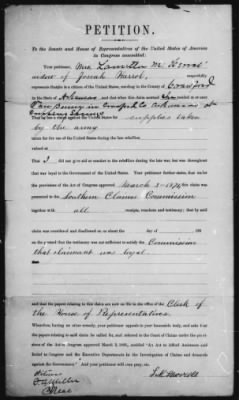 PETITION.
To the Senate and House of Representatives of the United States of America
in Congress assembled:
Your petitioner, Mrs.
of Josiah respectfully
represents that she is a citizen of the United States, residing in the county of Crawford
in the State of Arkansas, and that when this claim accrued she resided at or near
Van Buren in Arkansas
That has a claim against the United States for supplies taken
by the army
for use of the United States during the late rebellion
valued at
That I did not give aid or comfort to the rebellion during the late war, but was throughout
that war loyal to the Government of the United States. Your petitioner further states, that under the
provisions of the Act of Congress approved March 3 1871 this claim
Southern Claims Commission
together with all receipts, vouchers and testimony; that by said
claim was considered and disallowed on or about the day of 188
on the ground that the testimony was not sufficient to satisfy the Commission
that claimant was loyal
and that the papers relating to this claim are now on file in the office of the Clerk of
the House of Representatives.
Wherefore, having no other remedy, your petitioner appeals to your honorable body, and asks that
the papers relating to said claim be called for, and referred to the Court of Claims under the pro-
visions of the Act of Congress approved March 3, 1883, entitled "An Act to Afford Assistance and
Relief to Congress and the Executive Departments in the Investigation of Claims and demands
against the Government." And your petitioner will ever pray, etc.